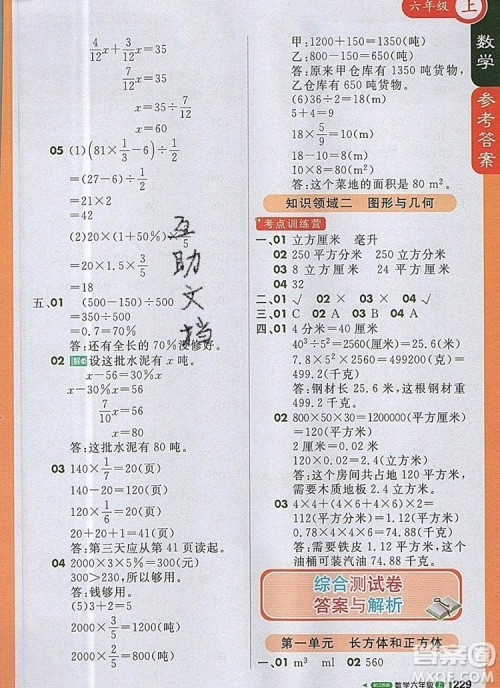 六年级 上
数学
参考答案
4/12 x+3/12 x=35
7/12 x=35
x=35÷7/12
x=60
05 (1)(81×1/3-6)÷1/2
=(27-6)÷1/2
=21÷1/2
=42
(2)20×(1+50%)×3/5
=20×1.5×3/5
=18
五、01 (500-150)÷500
=350÷500
=0.7=70%
答:还有全长的70%没修好。
02 解 设这批水泥有 x 吨。
x-56=30%x
x-30%x=56
7/10 x=56
x=80
答:这批水泥有80吨。
03 140×1/7=20(页)
140-20=120(页)
120×1/6=20(页)
20+20+1=41(页)
答:第三天应从第41页读起。
04 2000×3×5%=300(元)
300>230,所以够了。
答:她带的钱够了。
(5)3÷
甲:1200+150=1350(吨)
乙:800-150=650(吨)
答:原来甲仓库有1350吨货物,
乙仓库有650吨货物。
(6)36÷2=18(m)
5+4=9
18×5/9=10(m)
18-10=8(m)
10×8=80(m²)
答:这个菜地的面积是80 m²。
知识领域二 图形与几何
考点训练营
一、01 立方厘米 毫升
02 250平方分米 250立方分米
03 8 立方厘米 平方厘米
04 32
二、01 √ 02 × 03 × 04 √
三、01 C 02 A 03 B 04 A
四、01 4分米=40厘米
40³÷50²=25.6(厘米)
7.8×50²×25.6=499200(克)
499200克=499.2千克
答:钢材长25.6厘米,这根钢材
重499.2千克。
02 800×50×30=1200000
(平方厘米)=120(平方米)
2厘米=0.02米
120×0.02=2.4(立方米)
答:这个房间共占地120平方米,
需要木地板2.4立方米。
03 4×4+(4×6+4×6)×2=
112(平方分米)
4×4×6=96(立方分米)=96(升)
0.78×96=74.88(千克)
答:需要铁皮112平方分米,这个
油桶可装汽油74.88千克。
综合测试卷
答案与解析
第一单元 长方体和正方体
一、01 m³ ml 02 560
数学六年级 上 229
互助文档